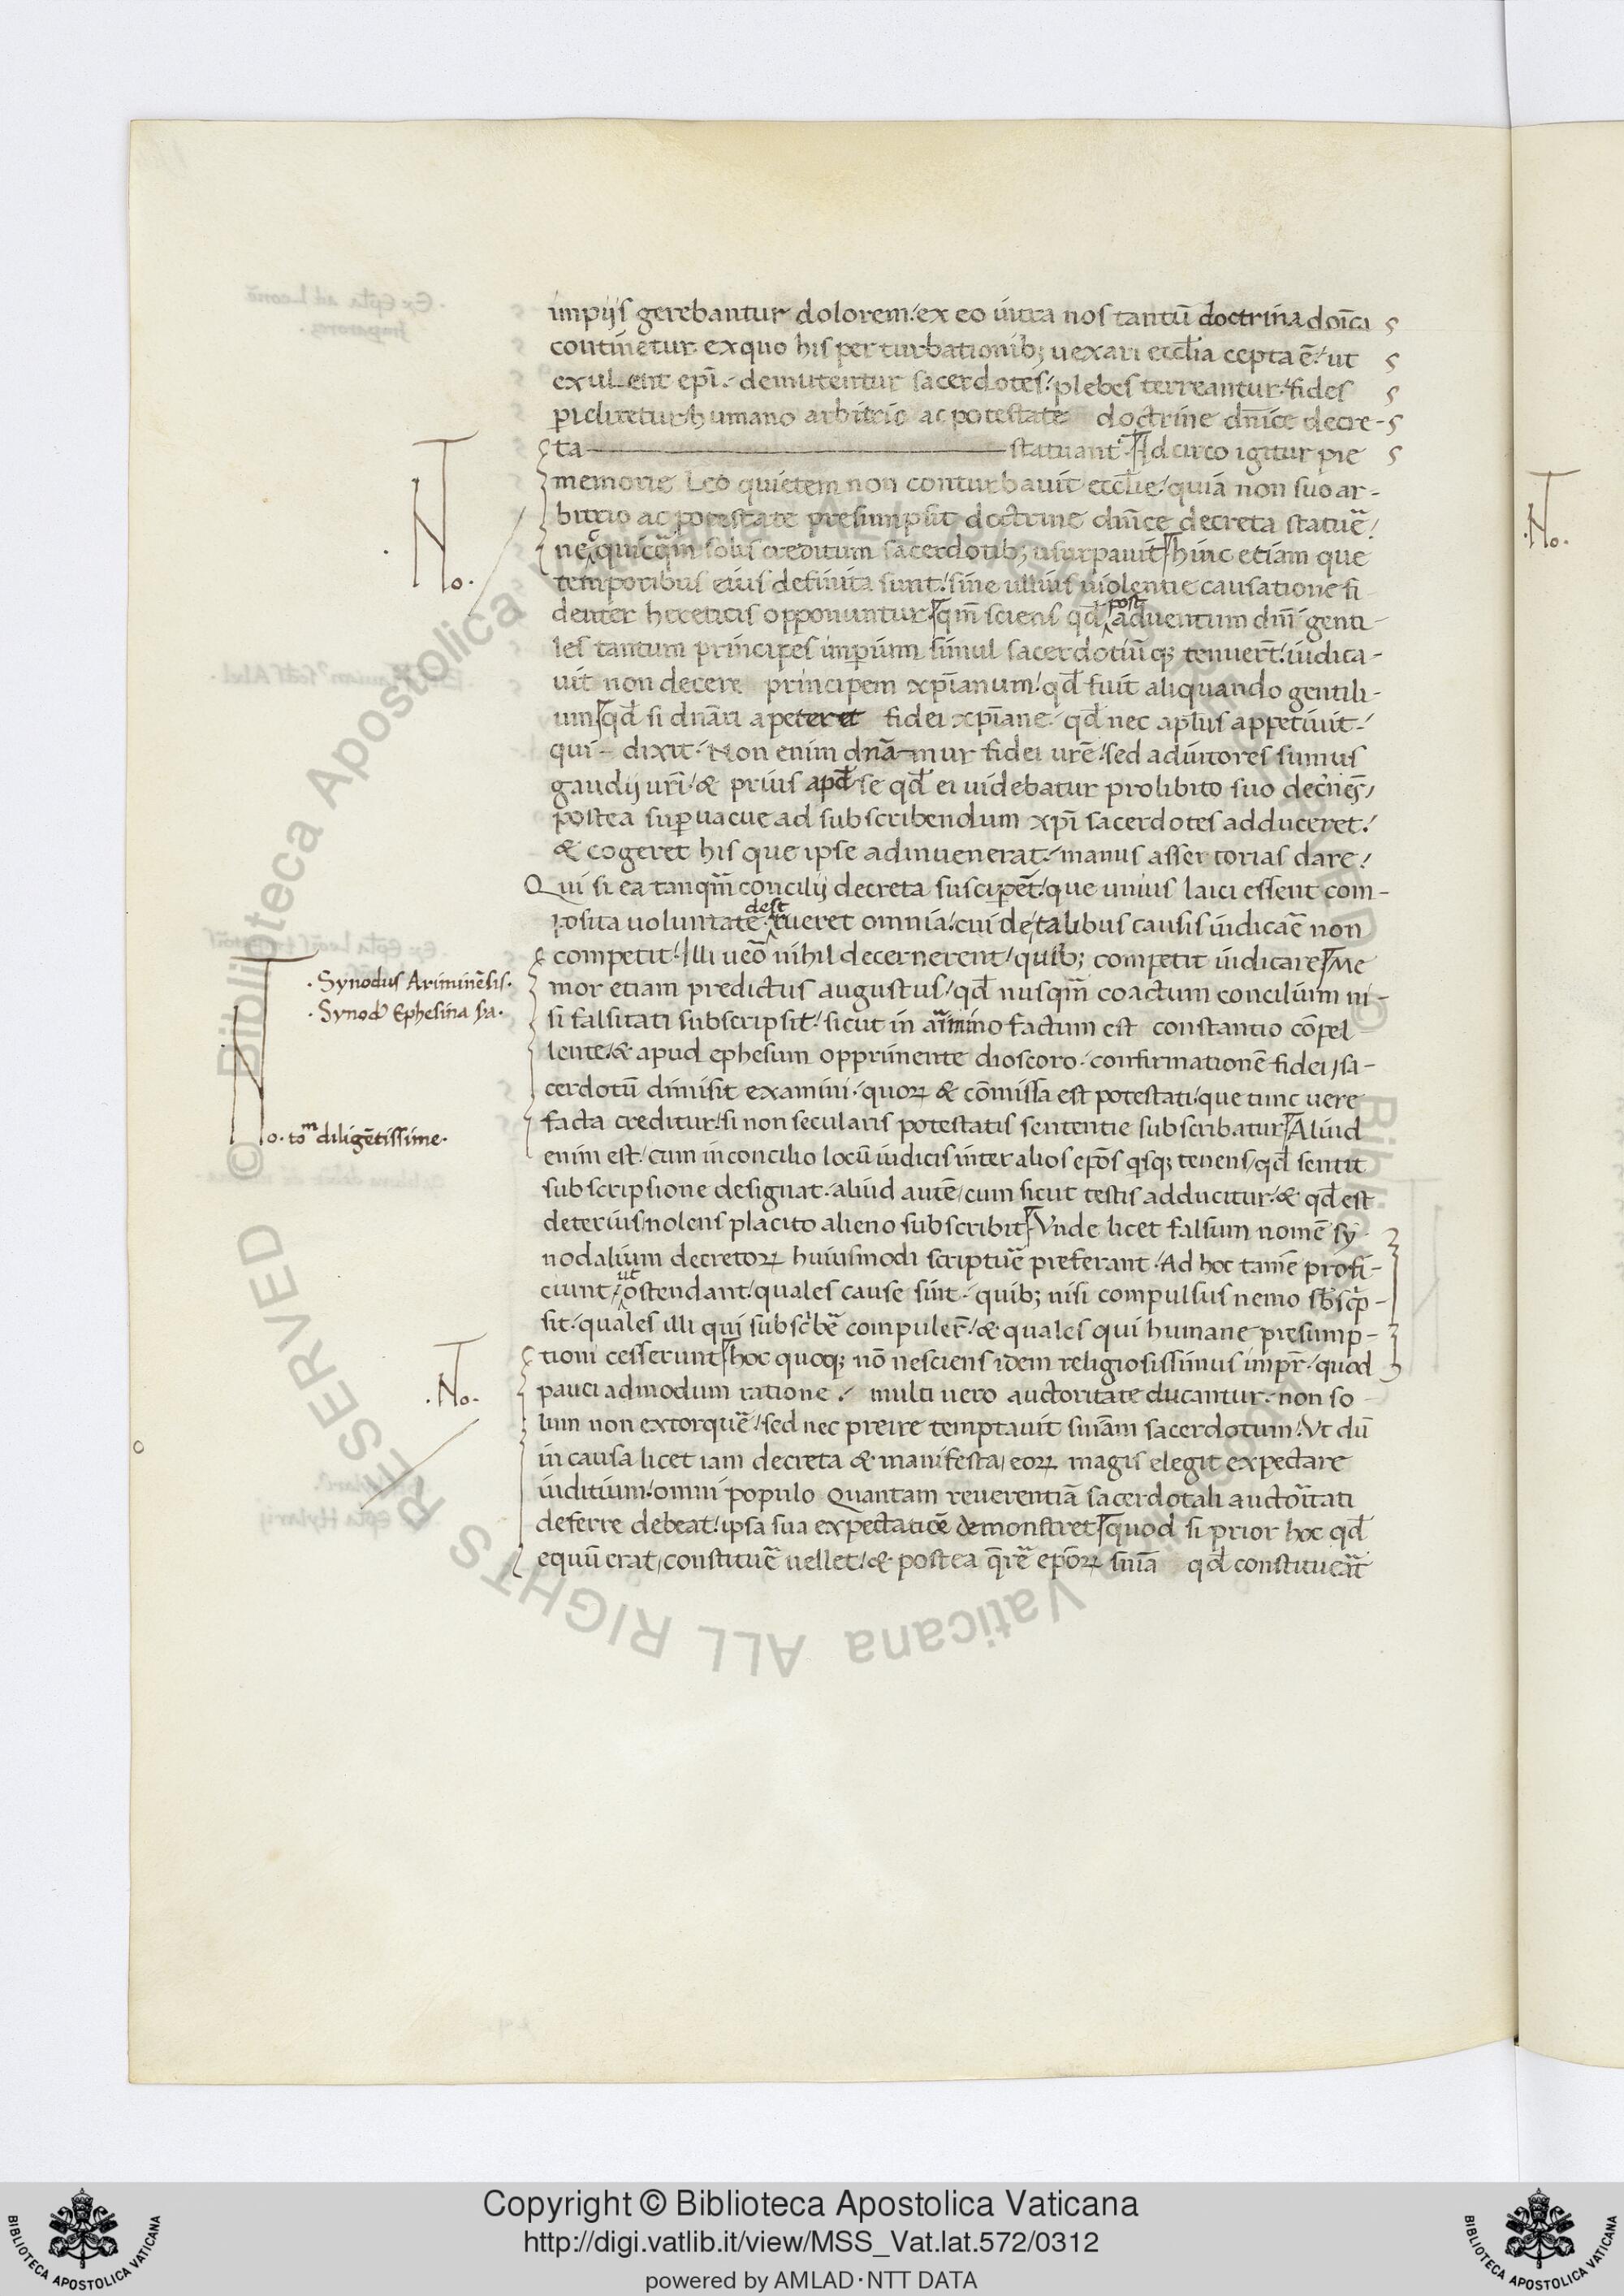 impijs gerebantur dolorem. ex eo intra nos tantū doctrina doīca
continetur. ex quo his perturbationib; uexari eccl̄ia cepta ē. ut
exulent epī. demutentur sacerdotes. plebes terreantur. fides
periclitetur. humano arbitrio ac potestate doctrine dn̄ice decre-
ta statuant. Idcirco igitur pie
memorie Leo quietem non conturbauit eccl̄ie. quia non suo ar-
bitrio ac potestate presumpsit doctrine dn̄ice decreta statuē.
nec quicq̄m solis creditum sacerdotib; usurpauit. hinc etiam que
temporibus eius definita sunt. sine ullius uiolentie causatione fi-
denter hereticis opponuntur. qm̄ sciens qd̄ post aduentum dn̄i genti-
les tantum principes imperium simul sacerdotiūq; tenuer̄t. iudica-
uit non decere principem xp̄ianum. qd̄ fuit aliquando gentili-
um. qd̄ si dn̄ari apeteret fidei xp̄iane. qd̄ nec aplūs appetiuit.
qui dixit. Non enim dn̄amur fidei ur̄e. sed adiutores sumus
gaudij ur̄i. & prius apd̄ se qd̄ ei uidebatur pro libito suo decn̄es
postea superuacue ad subscribendum xp̄i sacerdotes adduceret.
& cogeret his que ipse adinuenerat. manus assertorias dare.
Qui si ea tanqm̄ concilij decreta susciperet. que unius laici essent com-
posita uoluntate. destrueret omnia. cui de talibus causis iudicare non
competit. Illi ueō nihil decernerent. quib; competit iudicare. Me
mor etiam predictus augustus. qd̄ nusqm̄ coactum concilium ni-
si falsitati subscripsit. sicut in arimino factum est constantio cōpel-
lente. & apud ephesum opprimente dioscoro. confirmationē fidei sa-
cerdotū dimisit examini. quoꝝ & cōmissa est potestati. que tunc uere
facta creditur. si non secularis potestatis sententie subscribatur. Aliud
enim est. cum in concilio locū iudicis inter alios ep̄os qsq; tenens. qd̄ sentit
subscripsione designat. aliud autē. cum sicut testis adducitur. & qd̄ est
deterius nolens placito alieno subscribit. Vnde licet falsum nomē sy-
nodalium decretoꝝ huiusmodi scripture preferant. Ad hoc tamē profi-
ciunt. ut ostendant. quales cause sint. quib; nisi compulsus nemo sb̄scp̄-
sit. quales illi qui subscibē compuler̄. & quales qui humane presump-
tioni cesserunt. hoc quoq; nō nesciens idem religiosissimus impr̄. quod
pauci admodum ratione. multi uero auctoritate ducantur. non so-
lum non extorquē. sed nec preire temptauit sn̄iam sacerdotum. Vt dū
in causa licet iam decreta & manifesta, eoꝝ magis elegit expectare
iuditium. omni populo Quantam reuerentiā sacerdotali auctoritati
deferre debeat. ipsa sua expectatiōe demonstret. quod si prior hoc qd̄
equū erat, constituē uellet. & postea q̄rē ep̄oꝝ sn̄iā qd̄ constituerat
No.
· Synodus Ariminēsis.
· Synod' Ephesina
No. tom diligētissime.
No.
No.
© Biblioteca Apostolica Vaticana ALL RIGHTS RESERVED
Copyright © Biblioteca Apostolica Vaticana
http://digi.vatlib.it/view/MSS_Vat.lat.572/0312
powered by AMLAD·NTT DATA
BIBLIOTECA APOSTOLICA VATICANA
BIBLIOTECA APOSTOLICA VATICANA